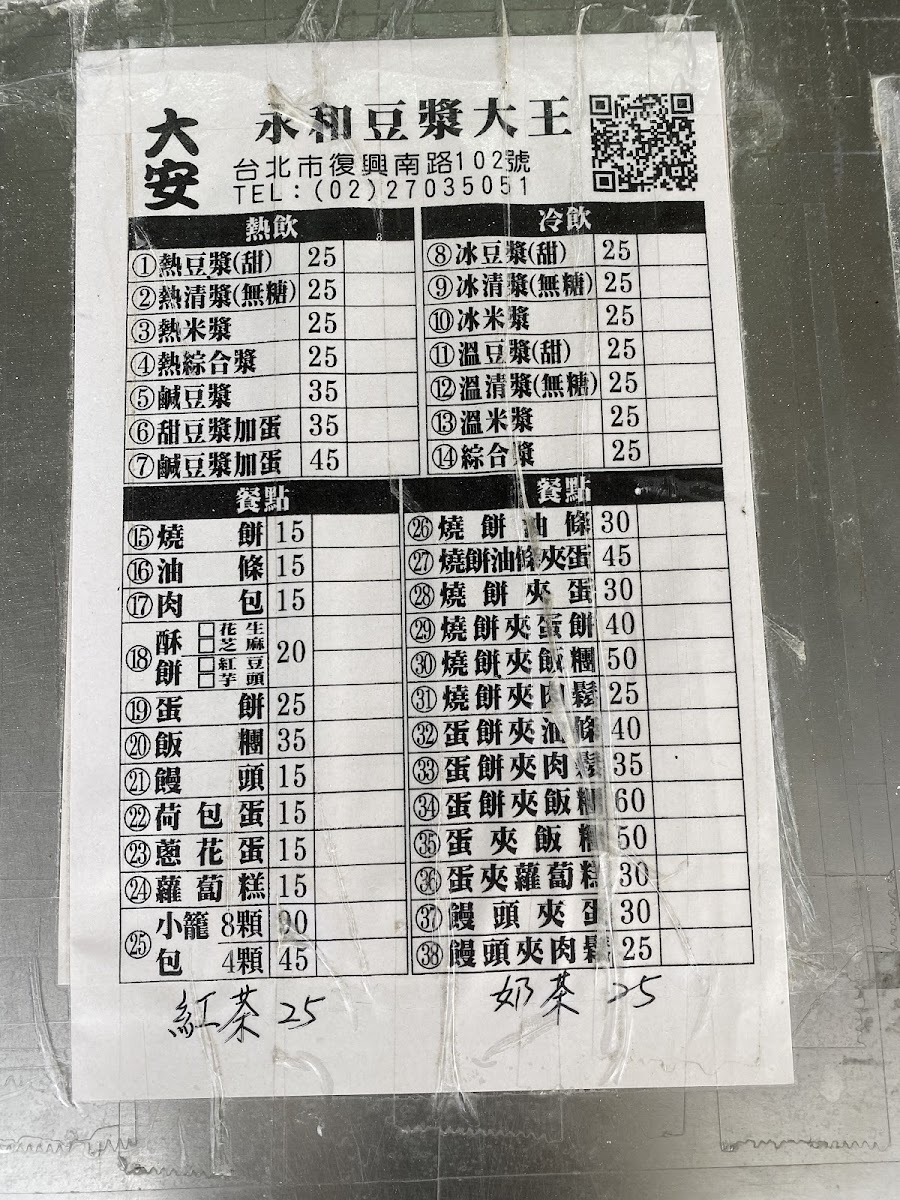 大安
永和豆漿大王
台北市復興南路102號
TEL:(02)27035051
熱飲
①熱豆漿(甜) 25
②熱清漿(無糖) 25
③熱米漿 25
④熱綜合漿 25
⑤鹹豆漿 35
⑥甜豆漿加蛋 35
⑦鹹豆漿加蛋 45
冷飲
⑧冰豆漿(甜) 25
⑨冰清漿(無糖) 25
⑩冰米漿 25
⑪溫豆漿(甜) 25
⑫溫清漿(無糖) 25
⑬溫米漿 25
⑭綜合漿 25
餐點
⑮燒餅 15
⑯油條 15
⑰肉包 15
⑱酥餅 □花生 □芝麻 □紅豆 □芋頭 20
⑲蛋餅 25
⑳飯糰 35
㉑饅頭 15
㉒荷包蛋 15
㉓蔥花蛋 15
㉔蘿蔔糕 15
㉕小籠包 8顆 90
4顆 45
餐點
㉖燒餅油條 30
㉗燒餅油條夾蛋 45
㉘燒餅夾蛋 30
㉙燒餅夾蛋餅 40
㉚燒餅夾飯糰 50
㉛燒餅夾肉鬆 25
㉜蛋餅夾油條 40
㉝蛋餅夾肉鬆 35
㉞蛋餅夾飯糰 60
㉟蛋夾飯糰 50
㊱蛋夾蘿蔔糕 30
㊲饅頭夾蛋 30
㊳饅頭夾肉鬆 25
紅茶 25
奶茶 25